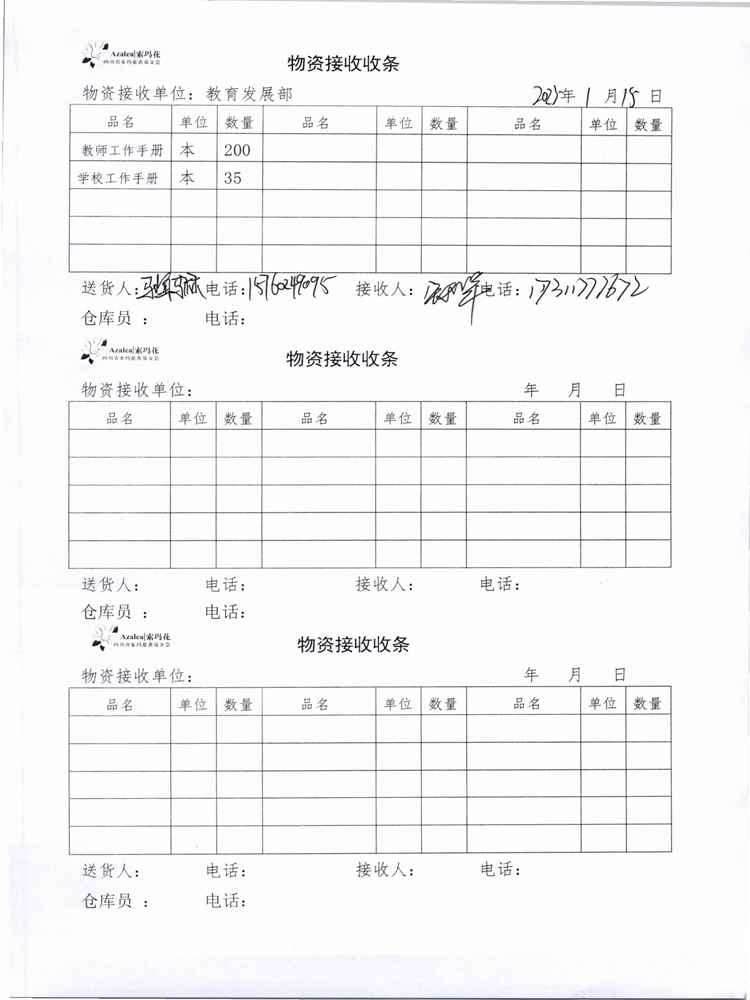 Azalea|索玛花
四川省索玛慈善基金会
物资接收收条
物资接收单位：教育发展部 年 1 月 15 日
品名 单位 数量 品名 单位 数量 品名 单位 数量
教师工作手册 本 200
学校工作手册 本 35
送货人： 电话：15760249095 接收人： 电话：17311777672
仓库员 ： 电话：
Azalea|索玛花
四川省索玛慈善基金会
物资接收收条
物资接收单位： 年 月 日
品名 单位 数量 品名 单位 数量 品名 单位 数量
送货人： 电话： 接收人： 电话：
仓库员 ： 电话：
Azalea|索玛花
四川省索玛慈善基金会
物资接收收条
物资接收单位： 年 月 日
品名 单位 数量 品名 单位 数量 品名 单位 数量
送货人： 电话： 接收人： 电话：
仓库员 ： 电话：